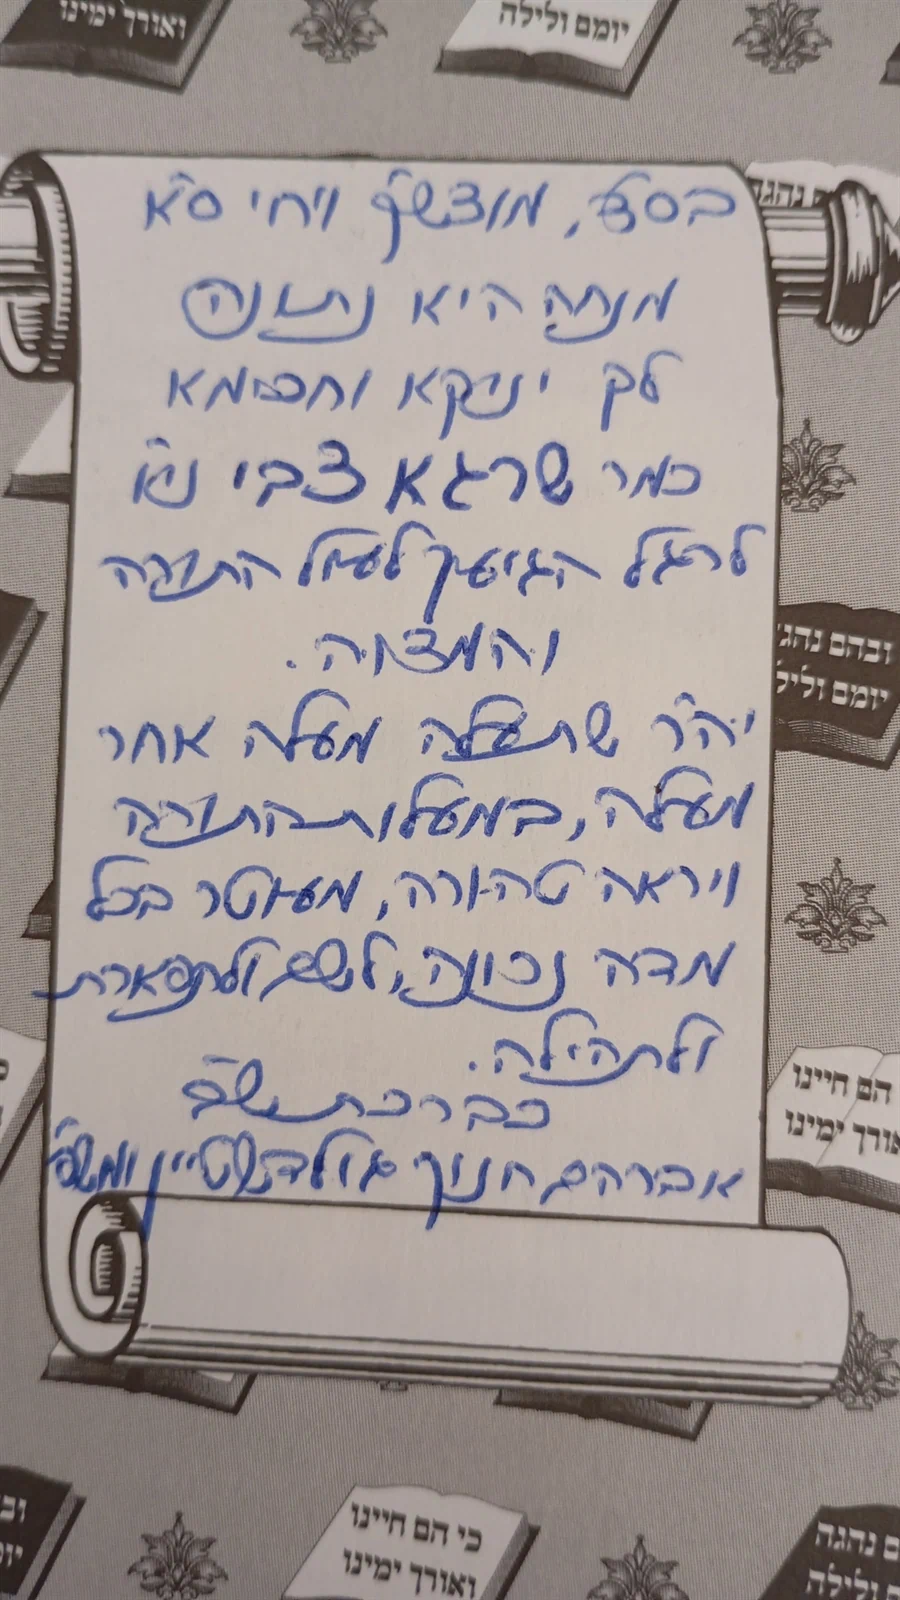 ואורך ימינו
יומם ולילה
בס״ד, מוצש״ק ויחי ס״א
מנחה היא נתונה
לך יניקא וחכימא
כמר שרגא צבי ני״ו
לרגל הגיעך לעול התורה
והמצוה.
יה״ר שתעלה מעלה אחר
מעלה, במעלות התורה
ויראה טהורה, מעוטר בכל
מדה נכונה, לשם ולתפארת
ולתהילה.
כברכת
אברהם חנוך גולדנשטיין ומשפ׳
ובהם נהגה
יומם וליל
הם חיינו
אורך ימינו
כי הם חיינו
ואורך ימינו
ם נהגה
ולילה